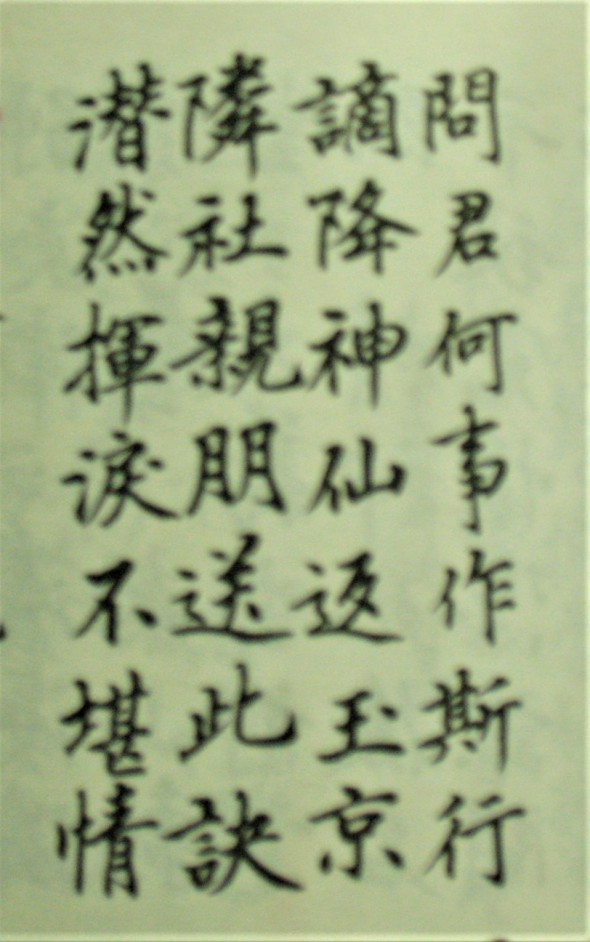 問君何事作斯行
謫降神仙返玉京
隣社親朋送此訣
潸然揮淚不堪情